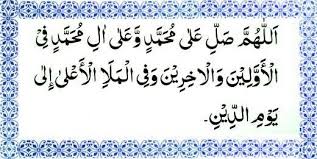 اَللّٰهُمَّ صَلِّ عَلٰى مُحَمَّدٍ وَّعَلٰى اٰلِ مُحَمَّدٍ فِى
الْأَوَّلِيْنَ وَالْاٰخِرِيْنَ وَفِى الْمَلَاِ الْأَعْلٰى اِلٰى
يَوْمِ الدِّيْنِ.